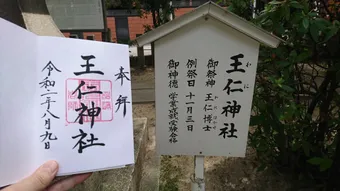 奉拝
王仁神社
令和一年八月九日
王仁神社
わに
御祭神 王仁博士
わに はかせ
例祭日 十一月三日
御神徳 学業成就受験合格